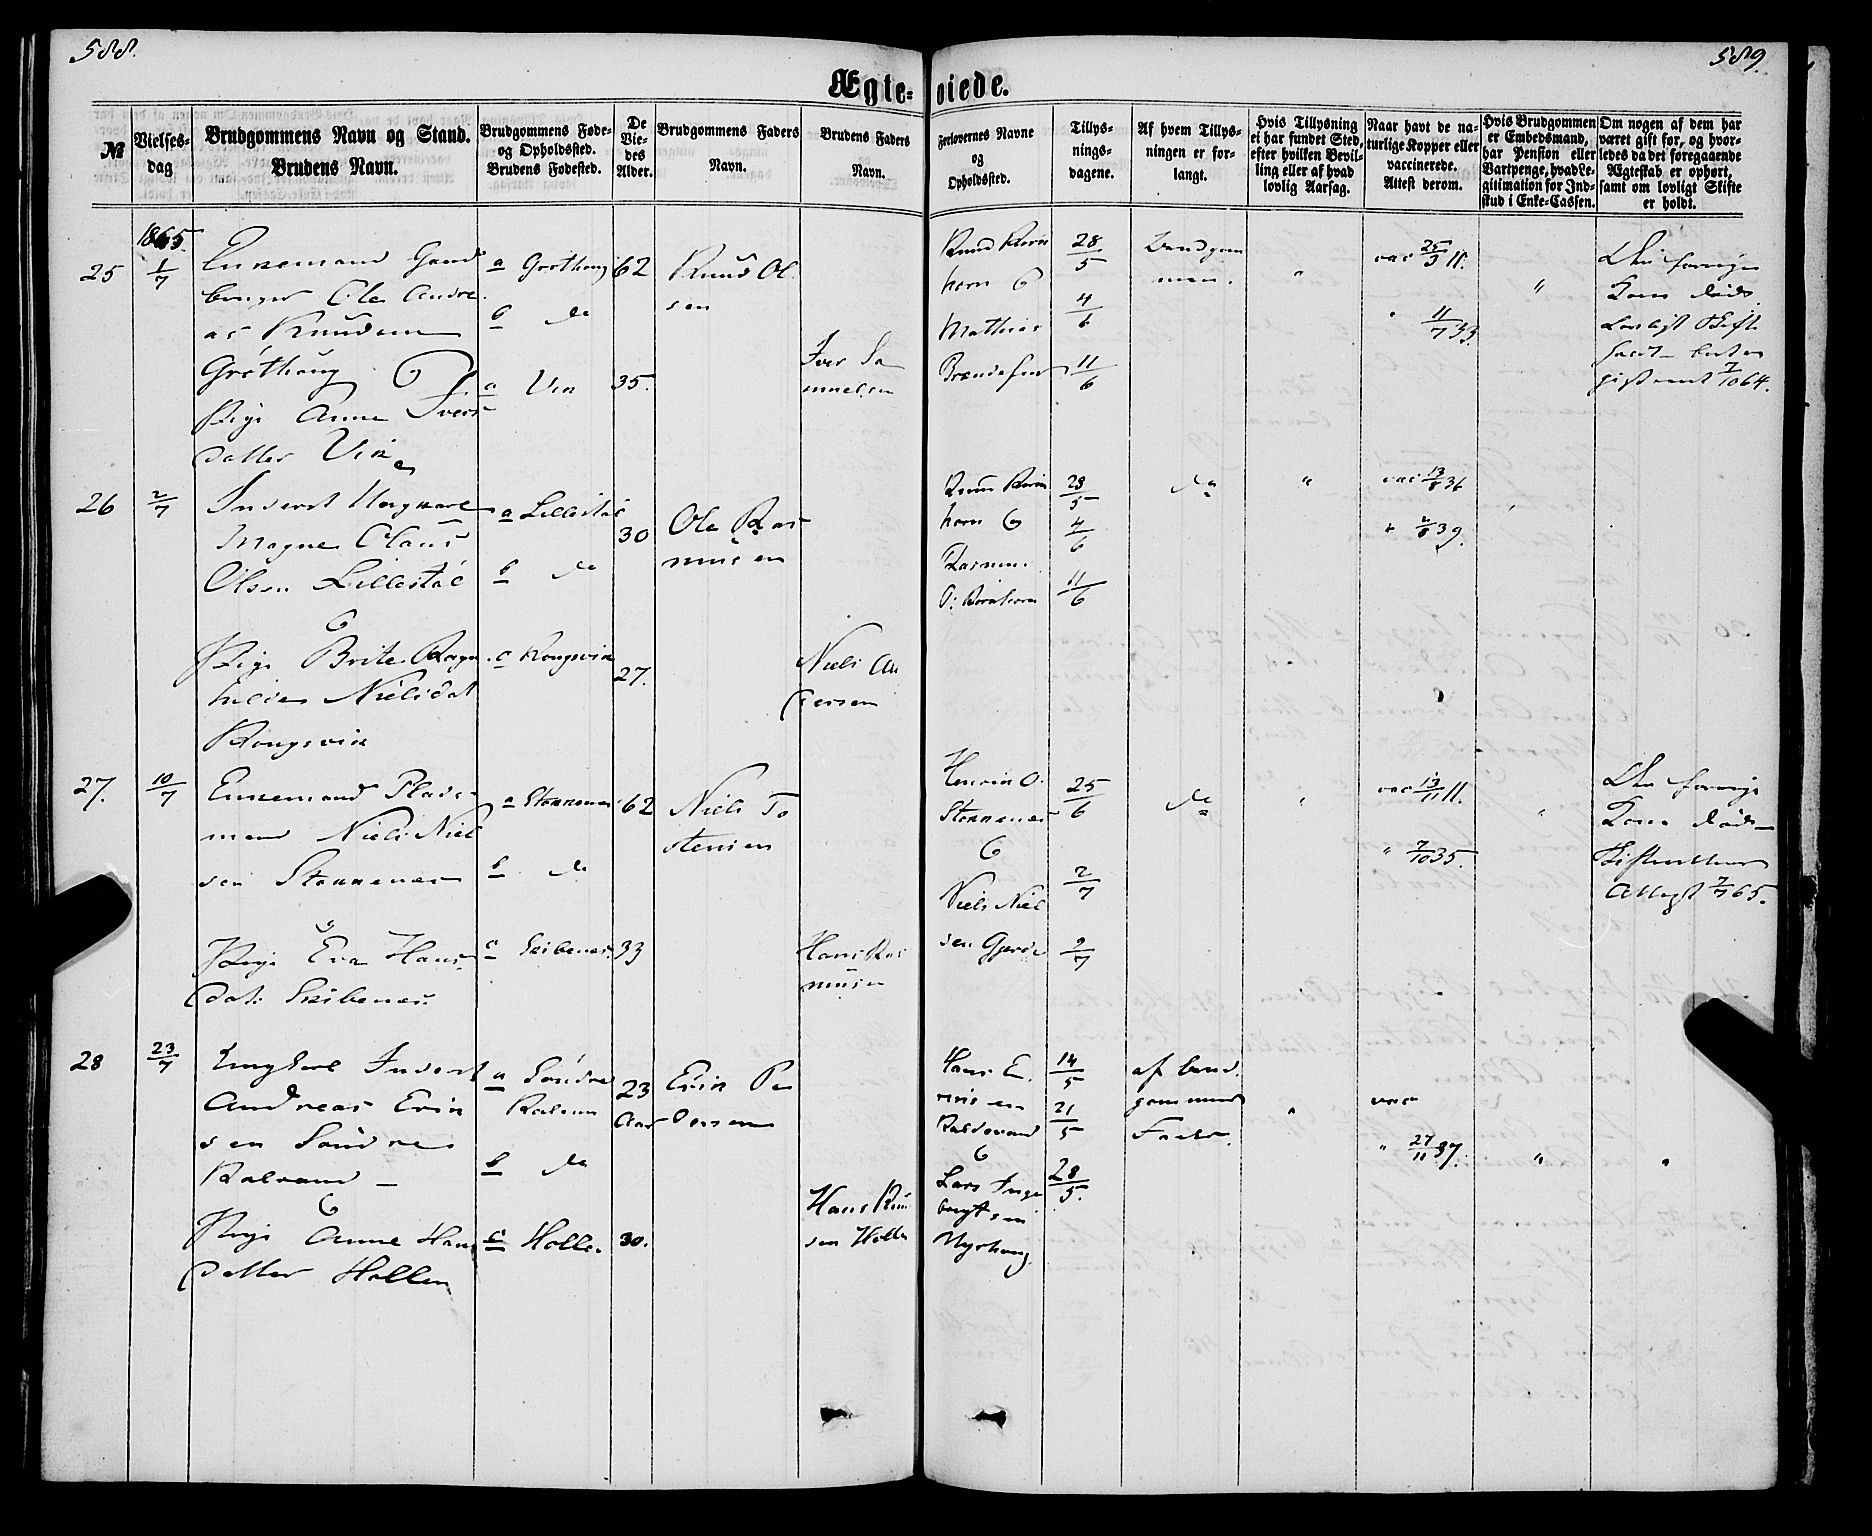 588.
589.
Ægte-viede.
№
Vielses-
dag
Brudgommens Navn og Stand.
Brudens Navn.
Brudgommens Føde-
og Opholdssted.
Brudens Fødested.
De
Vie-
des
Alder.
Brudgommens Faders
Navn.
Brudens Faders
Navn.
Forlovernes Navne
og
Opholdssted.
Tillys-
nings-
dagene.
Af hvem Tillys-
ningen er for-
langt.
Hvis Tillysning
ei har fundet Sted,
efter hvilken Bevil-
ling eller af hvad
lovlig Aarsag.
Naar havt de na-
turlige Kopper eller
vaccinerede.
Attest derom.
Hvis Brudgommen
er Embedsmand,
har Pension eller
Vartpenge, hvad Le-
gitimation for Ind-
skud i Enke-Cassen.
Om nogen af dem har
været gift før, og hvor-
ledes da det foregaaende
Ægteskab er ophørt,
samt om lovligt Skifte
er holdt.
1865.
25
1/7
Enkemand Gaard
bruger Ole Andre
as Knudsen
Grøthaug &
Pige Anne Ivers
datter Vik
a Grøthaug
b do
c Vik
62
35.
Knud Ol
sen
Iver Sa
muelsen
Mathias
28/5
4/6
11/6
Brudgom
men.
"
vac 25/5 11.
" 11/7 33.
"
Den forrige
Kone død.
7/10 64.
26
2/7
Inderst
Magne Claus
Olsen Lillestøl
&
Pige Brite Ragn
hilde Nielsdat
Kongsvik
a Lillestøl
b do
c Kongsvik
30
27.
Ole Ras
musen
Niels An
dersen
horn &
28/5
4/6
11/6
do
"
36
39.
27.
10/7
Enkemand Plads-
mand Niels Niel
sen Stokkenes
&
Pige Eva Hans
dat: Skibenes.
a Stokkenes
b do
c Skibenes
62
33
Niels To
stensen
Hans Ras
musen
Henrik O.
Stokkenes
&
Niels Niel
sen Gjerde
25/6
2/7
9/7
do
"
vac 13/11 11.
" 7/10 35.
"
Den forrige
Kone død
Attest 7/7 65.
28
23/7
Ungkarl Inderst
Andreas Erik
sen Søndre
Kalvand
&
Pige Anne Hans
datter Hollen
a Søndre
b do
c Holle.
23
Aar
30.
Erik Pe
dersen
Hans Knu
sen Hollen
Hans E.
riksen
&
Lars Inge
brigtsen
Myrhaug
14/5
21/5
28/5.
af brud.
gommens
Fader.
"
vac
" 27/11 37.
"
"